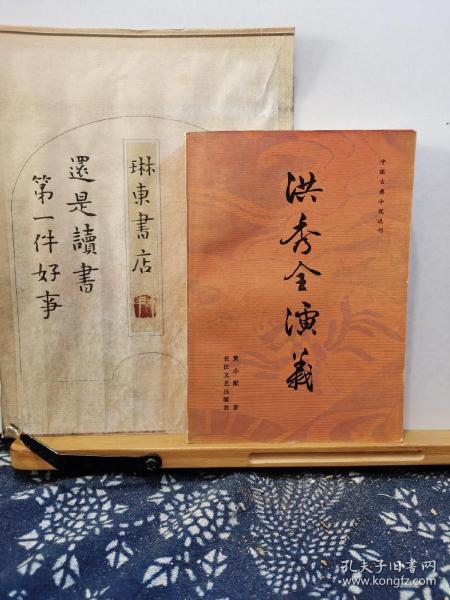 琳東書店
還是讀書
第一件好事
中国古典小说选刊
洪秀全演義
黄小配 著
长江文艺出版社
孔夫子旧书网
www.kongfz.com